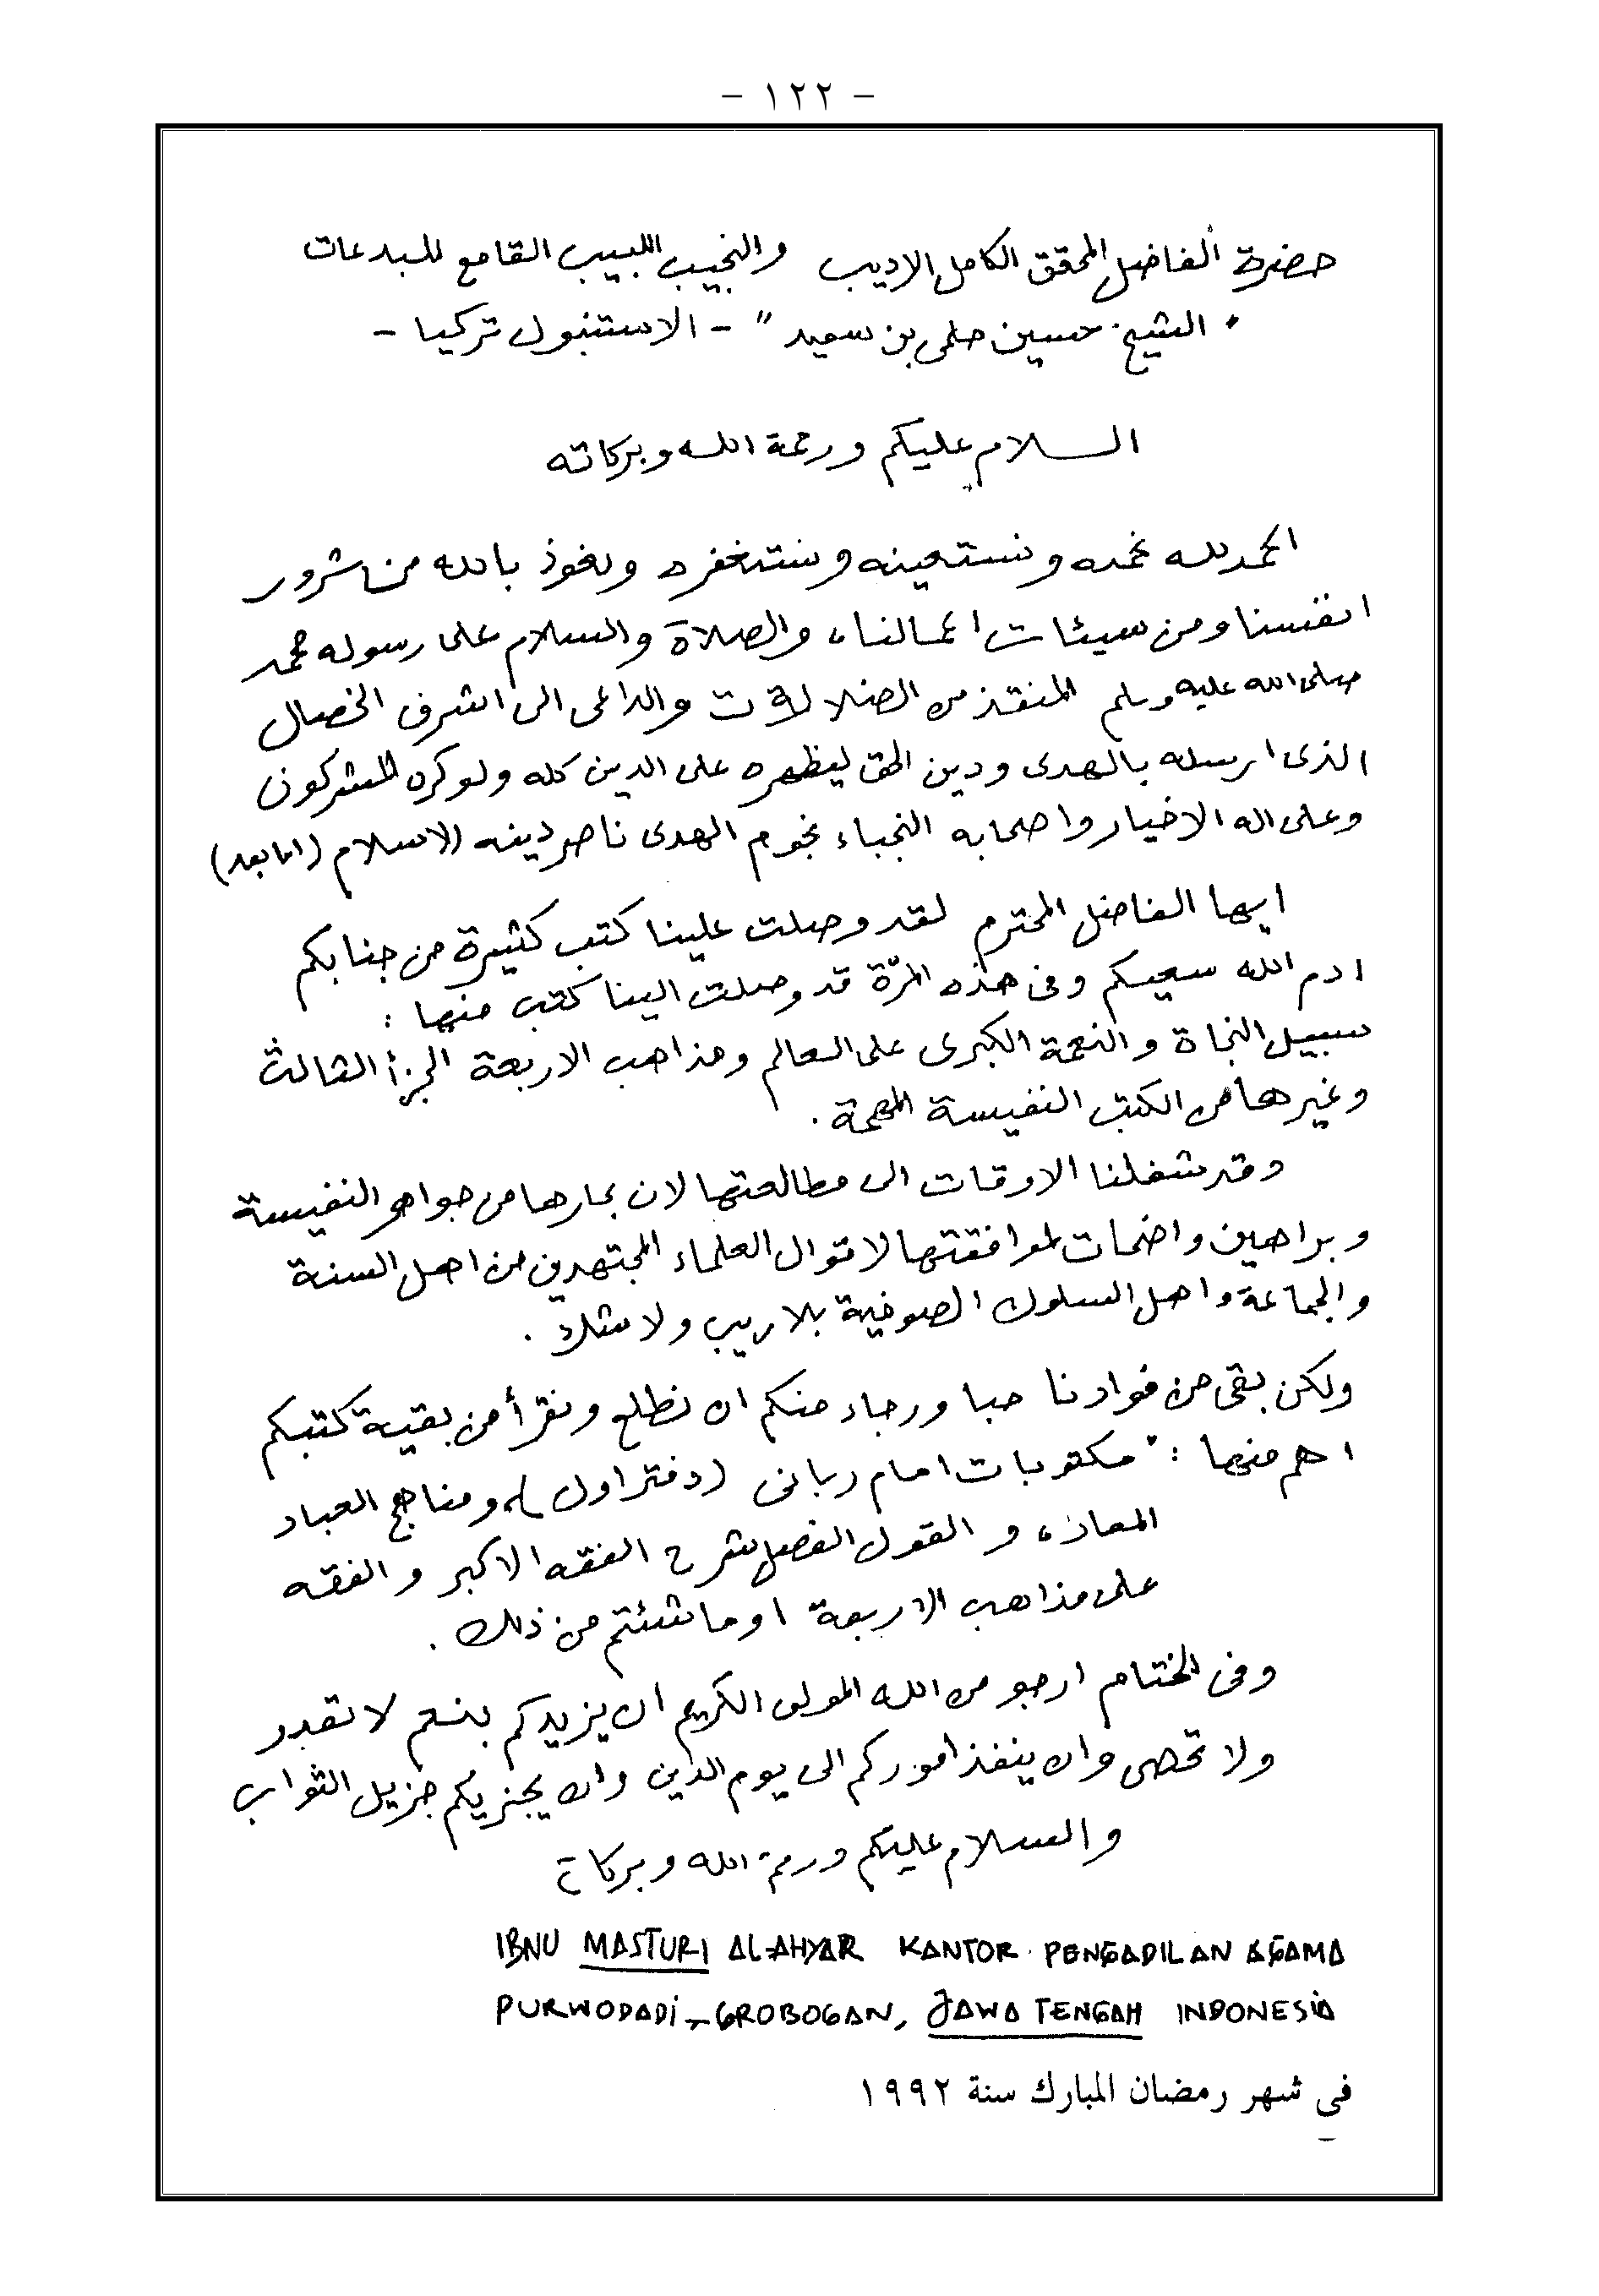 - ١٢٢ -
حضرة الفاضل المحقق الكامل الاديب والنجيب اللبيب القامع للبدعات
" الشيخ حسين حلمى بن سعيد " - الاستنبول تركيا -
السلام عليكم ورحمة الله وبركاته
الحمد لله نحمده ونستعينه ونستغفره ونعوذ بالله من شرور
انفسنا ومن سيئات اعمالنا، والصلاة والسلام على رسوله محمد
صلى الله عليه وسلم المنقذ من الضلالات والداعى الى اشرف الخصال
الذى ارسله بالهدى ودين الحق ليظهره على الدين كله ولو كره المشركون
وعلى اله الاخيار واصحابه النجباء نجوم الهدى ناصر دينه الاسلام (اما بعد)
ايها الفاضل المحترم لقد وصلت علينا كتب كثيرة من جنابكم
ادم الله سعيكم وفى هذه المرّة قد وصلت الينا كتب منها :
سبيل النجاة والنعمة الكبرى على العالم ومذاهب الاربعة الجزأ الثالث
وغيرها من الكتب النفيسة المهمة .
وقد شغلنا الاوقات الى مطالعتها لان بحارها من جواهر النفيسة
وبراهين واضحات لموافقتها لاقوال العلماء المجتهدين من اهل السنة
والجماعة واهل السلوك الصوفية بلا ريب ولا شك .
ولكن بقى من فوادنا حبا ورجاء منكم ان نطلع ونقرأ من بقية كتبكم
اهم منها : " مكتوبات امام ربانى (دفتر اول)، ومناهج العباد
المعاذ، و القول الفصل شرح الفقه الاكبر والفقه
على مذاهب الاربعة او ما شئتم من ذلك .
وفى الختام ارجو من الله المولى الكريم ان يزيدكم بنعم لا تقدر
ولا تحصى وان ينفذ اموركم الى يوم الدين وان يجزيكم جزيل الثواب
والسلام عليكم ورحمة الله وبركاته
IBNU MASTURI AL-AHYAR KANTOR PENGADILAN AGAMA
PURWODADI - GROBOGAN, JAWA TENGAH INDONESIA
في شهر رمضان المبارك سنة ١٩٩٢